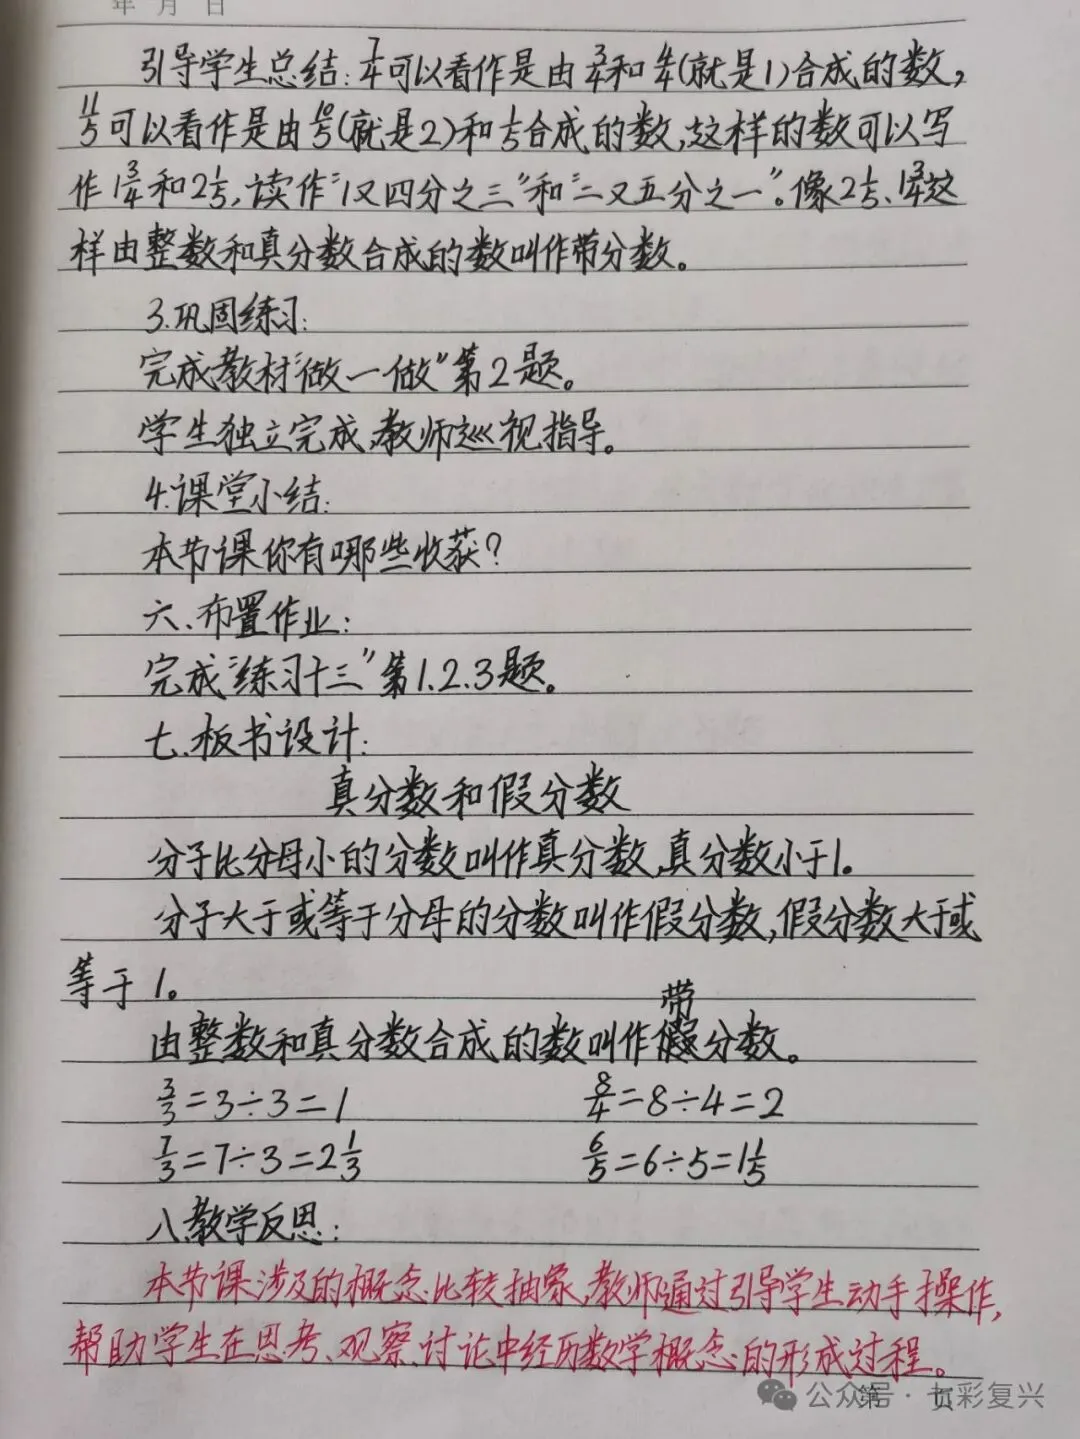 年 月 日
引导学生总结:7/4可以看作是由3/4和4/4(就是1)合成的数,
11/5可以看作是由10/5(就是2)和1/5合成的数,这样的数可以写
作1 3/4和2 1/5,读作“1又四分之三”和“二又五分之一”。像2 1/5、1 3/4这
样由整数和真分数合成的数叫作带分数。
3.巩固练习:
完成教材“做一做”第2题。
学生独立完成,教师巡视指导。
4.课堂小结:
本节课你有哪些收获?
六、布置作业:
完成“练习十三”第1.2.3题。
七.板书设计:
真分数和假分数
分子比分母小的分数叫作真分数,真分数小于1。
分子大于或等于分母的分数叫作假分数,假分数大于或
等于1。
由整数和真分数合成的数叫作带分数。
3/3=3÷3=1 8/4=8÷4=2
7/3=7÷3=2 1/3 6/5=6÷5=1 1/5
八.教学反思:
本节课涉及的概念比较抽象,教师通过引导学生动手操作,
帮助学生在思考、观察、讨论中经历数学概念的形成过程。
第 页
公众号·七彩复兴